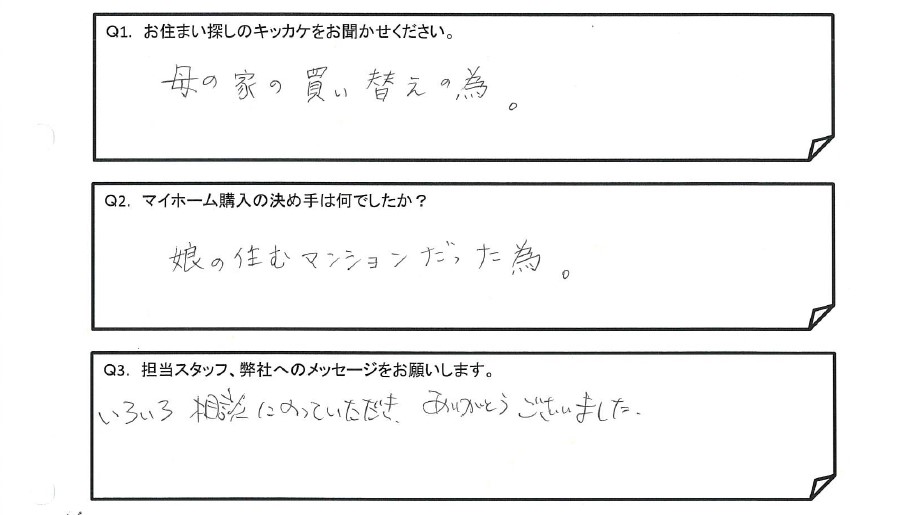 Q1. お住まい探しのキッカケをお聞かせください。
母の家の買い替えの為。
Q2. マイホーム購入の決め手は何でしたか？
娘の住むマンションだった為。
Q3. 担当スタッフ、弊社へのメッセージをお願いします。
いろいろ相談にのっていただき、ありがとうございました。